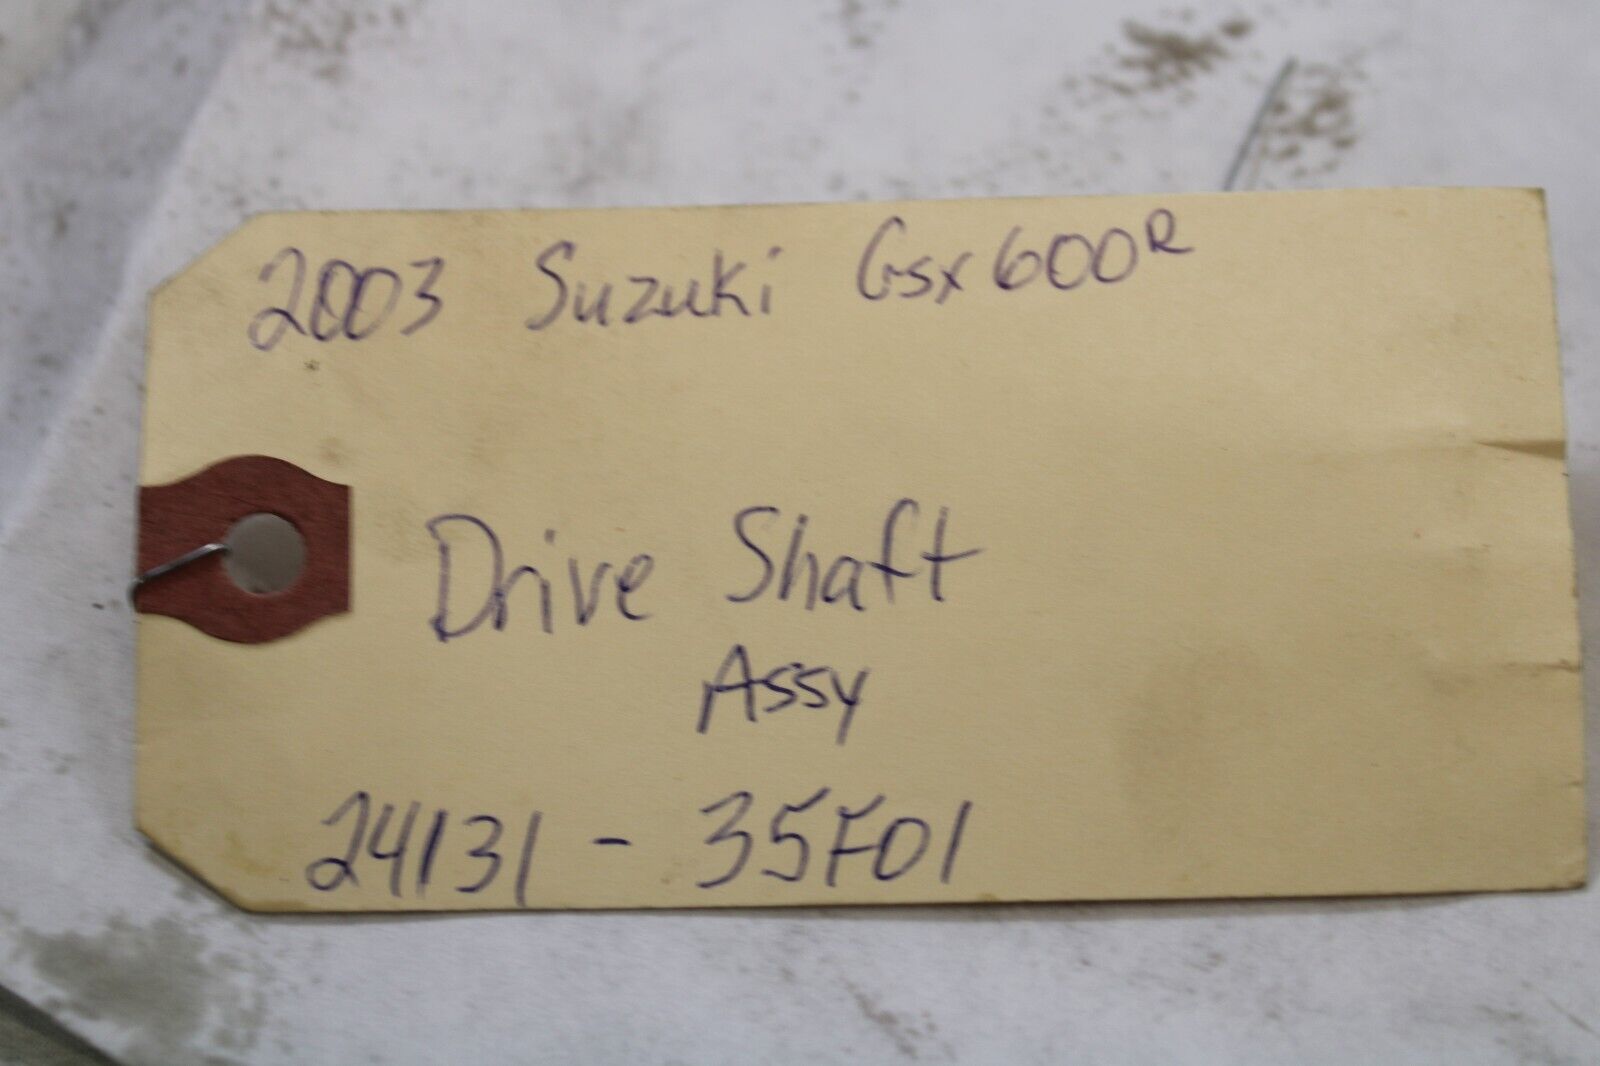 2003 Suzuki Gsx600R
Drive Shaft
Assy
24131 - 35F01